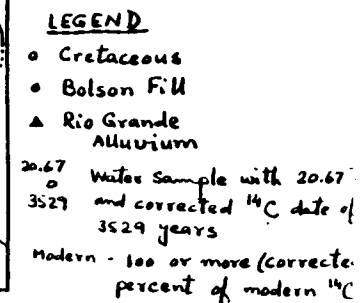 LEGEND
Cretaceous
Bolson Fill
Rio Grande
Alluvium
20.67 Water Sample with 20.67
3529 and corrected ¹⁴C date of
3529 years
Modern - 100 or more (correcte
percent of modern ¹⁴C